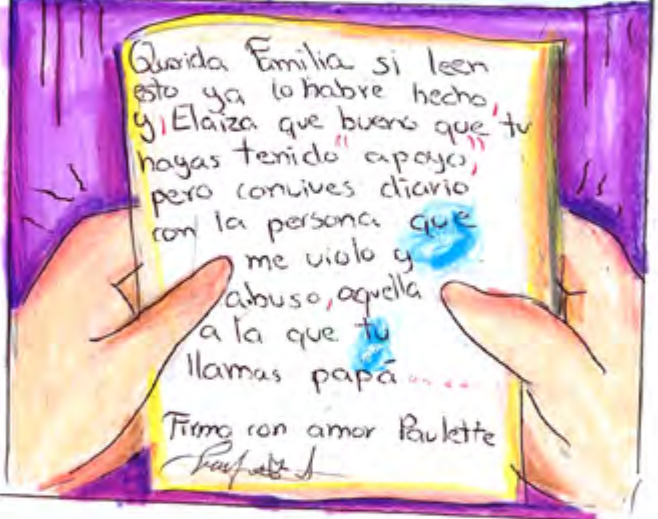 Querida Familia si leen
esto ya lo habre hecho,
y, Elaiza que bueno que tu
hayas tenido "apoyo",
pero convives diario
con la persona que
me violo y
abuso, aquella
a la que tu
llamas papá......
Firma con amor Paulette